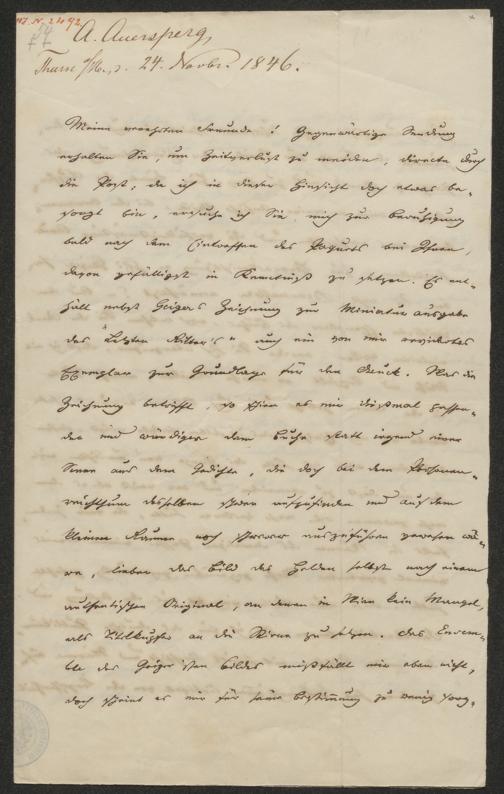 A. Auersperg,
Thurn a/H., d. 24. Novbr. 1846.
Meine verehrten Freunde! Gegenwärtige Sendung
erhalten Sie, um Zeitverlust zu meiden, directe durch
die Post; da ich in dieser Hinsicht doch etwas be-
sorgt bin, ersuche ich Sie, mich zur Beruhigung
bald nach dem Eintreffen des Paquets bei Ihnen,
davon gefälligst in Kenntniß zu setzen. Es ent-
hält nebst Geigers Zeichnung zur Miniaturausgabe
des "Letzten Ritter's" auch ein von mir revidirtes
Exemplar zur Grundlage für den Druck. Was die
Zeichnung betrifft, so schien es mir dießmal passen-
der und würdiger dem Buche statt irgend einer
Scene aus dem Gedichte, die doch bei dem
desselben schwer aufzufinden und auf dem
kleinen Raume noch schwerer auszuführen gewesen wä-
re, lieber das Bild des Helden selbst nach einem
authentischen Original, an denen in Wien kein Mangel,
als Titelkupfer an die Stirne zu setzen. Das Ensem-
ble des Geiger'schen Bildes mißfällt mir eben nicht,
doch scheint es mir für seine Bestimmung zu wenig sorg-